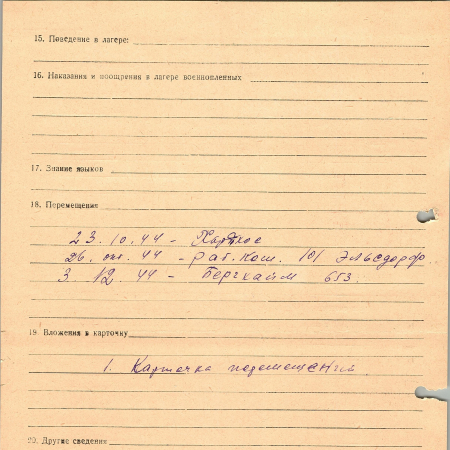 15. Поведение в лагере:
16. Наказания и поощрения в лагере военнопленных
17. Знание языков
18. Перемещения
23. 10. 44 -
26. окт. 44 - раб. ком. 101 Эльсдорф
3. 12. 44 - Бергхайм 653.
19. Вложения в карточку
1. Карточка перемещения.
20. Другие сведения